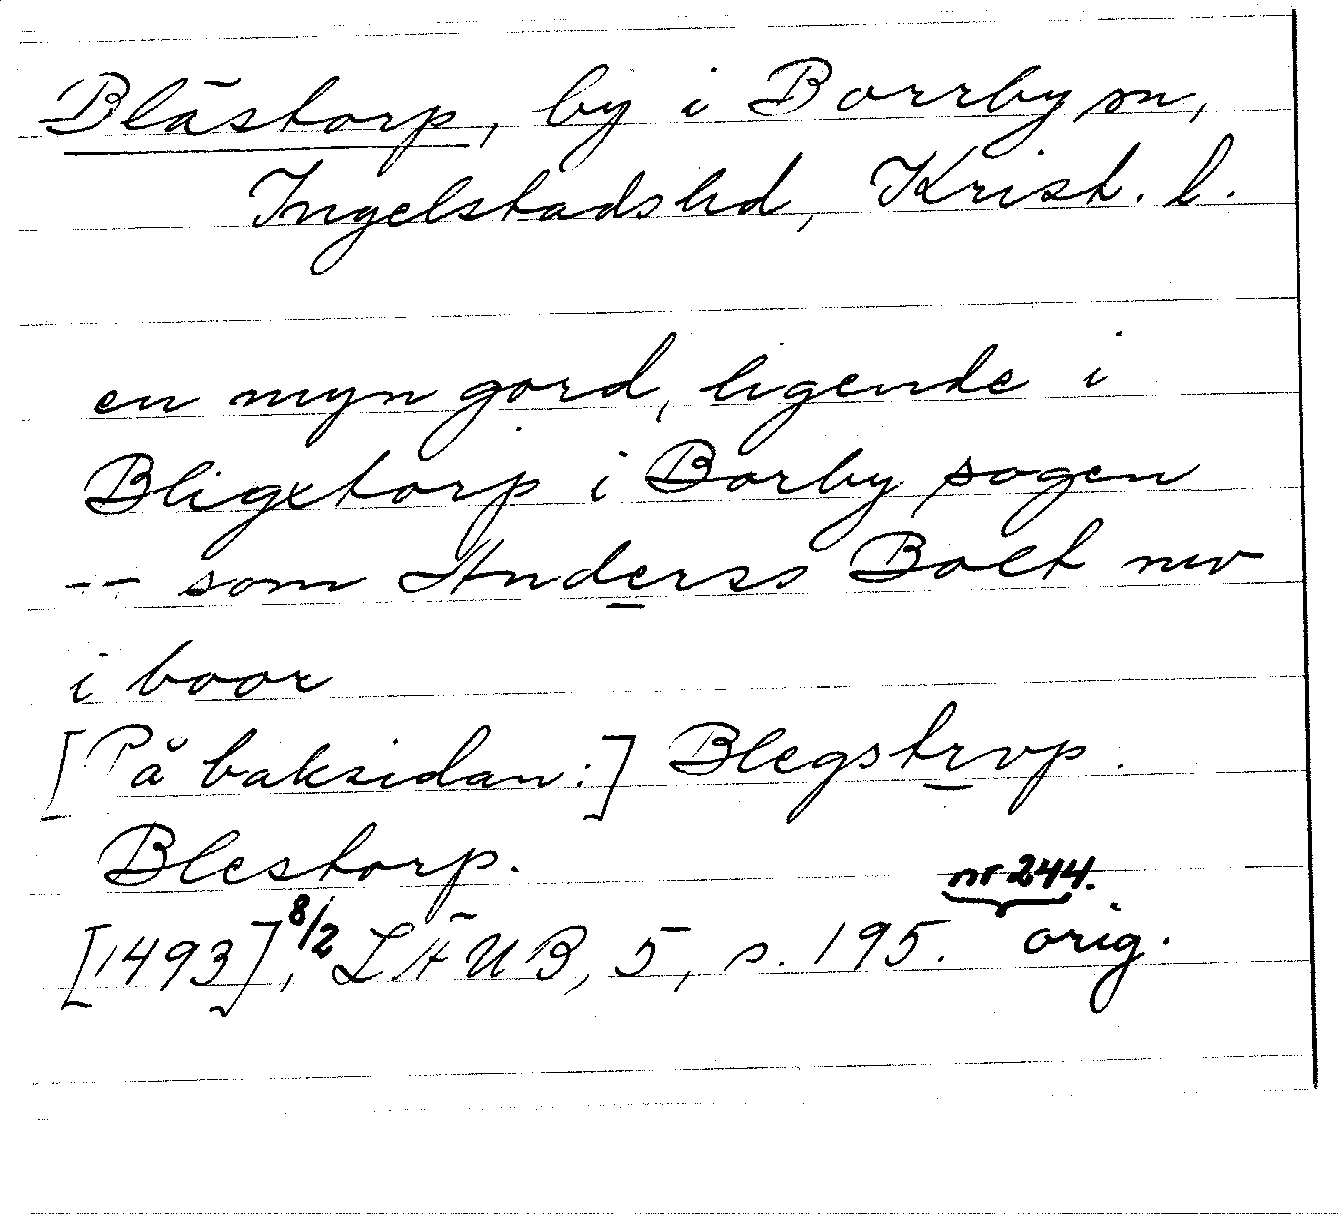 Bläs​torp, by i Borrby sn,
Ingelstads hd, Krist. l.
en myn gord, ligende i
Bligxtorp i Borby sogen
-- som Anderss Bolt nw
i boor
[På baksidan:] Blegstrvp.
Blestorp.
nr 244.
[1493] 8/2, LÄUB, 5, s. 195. orig.